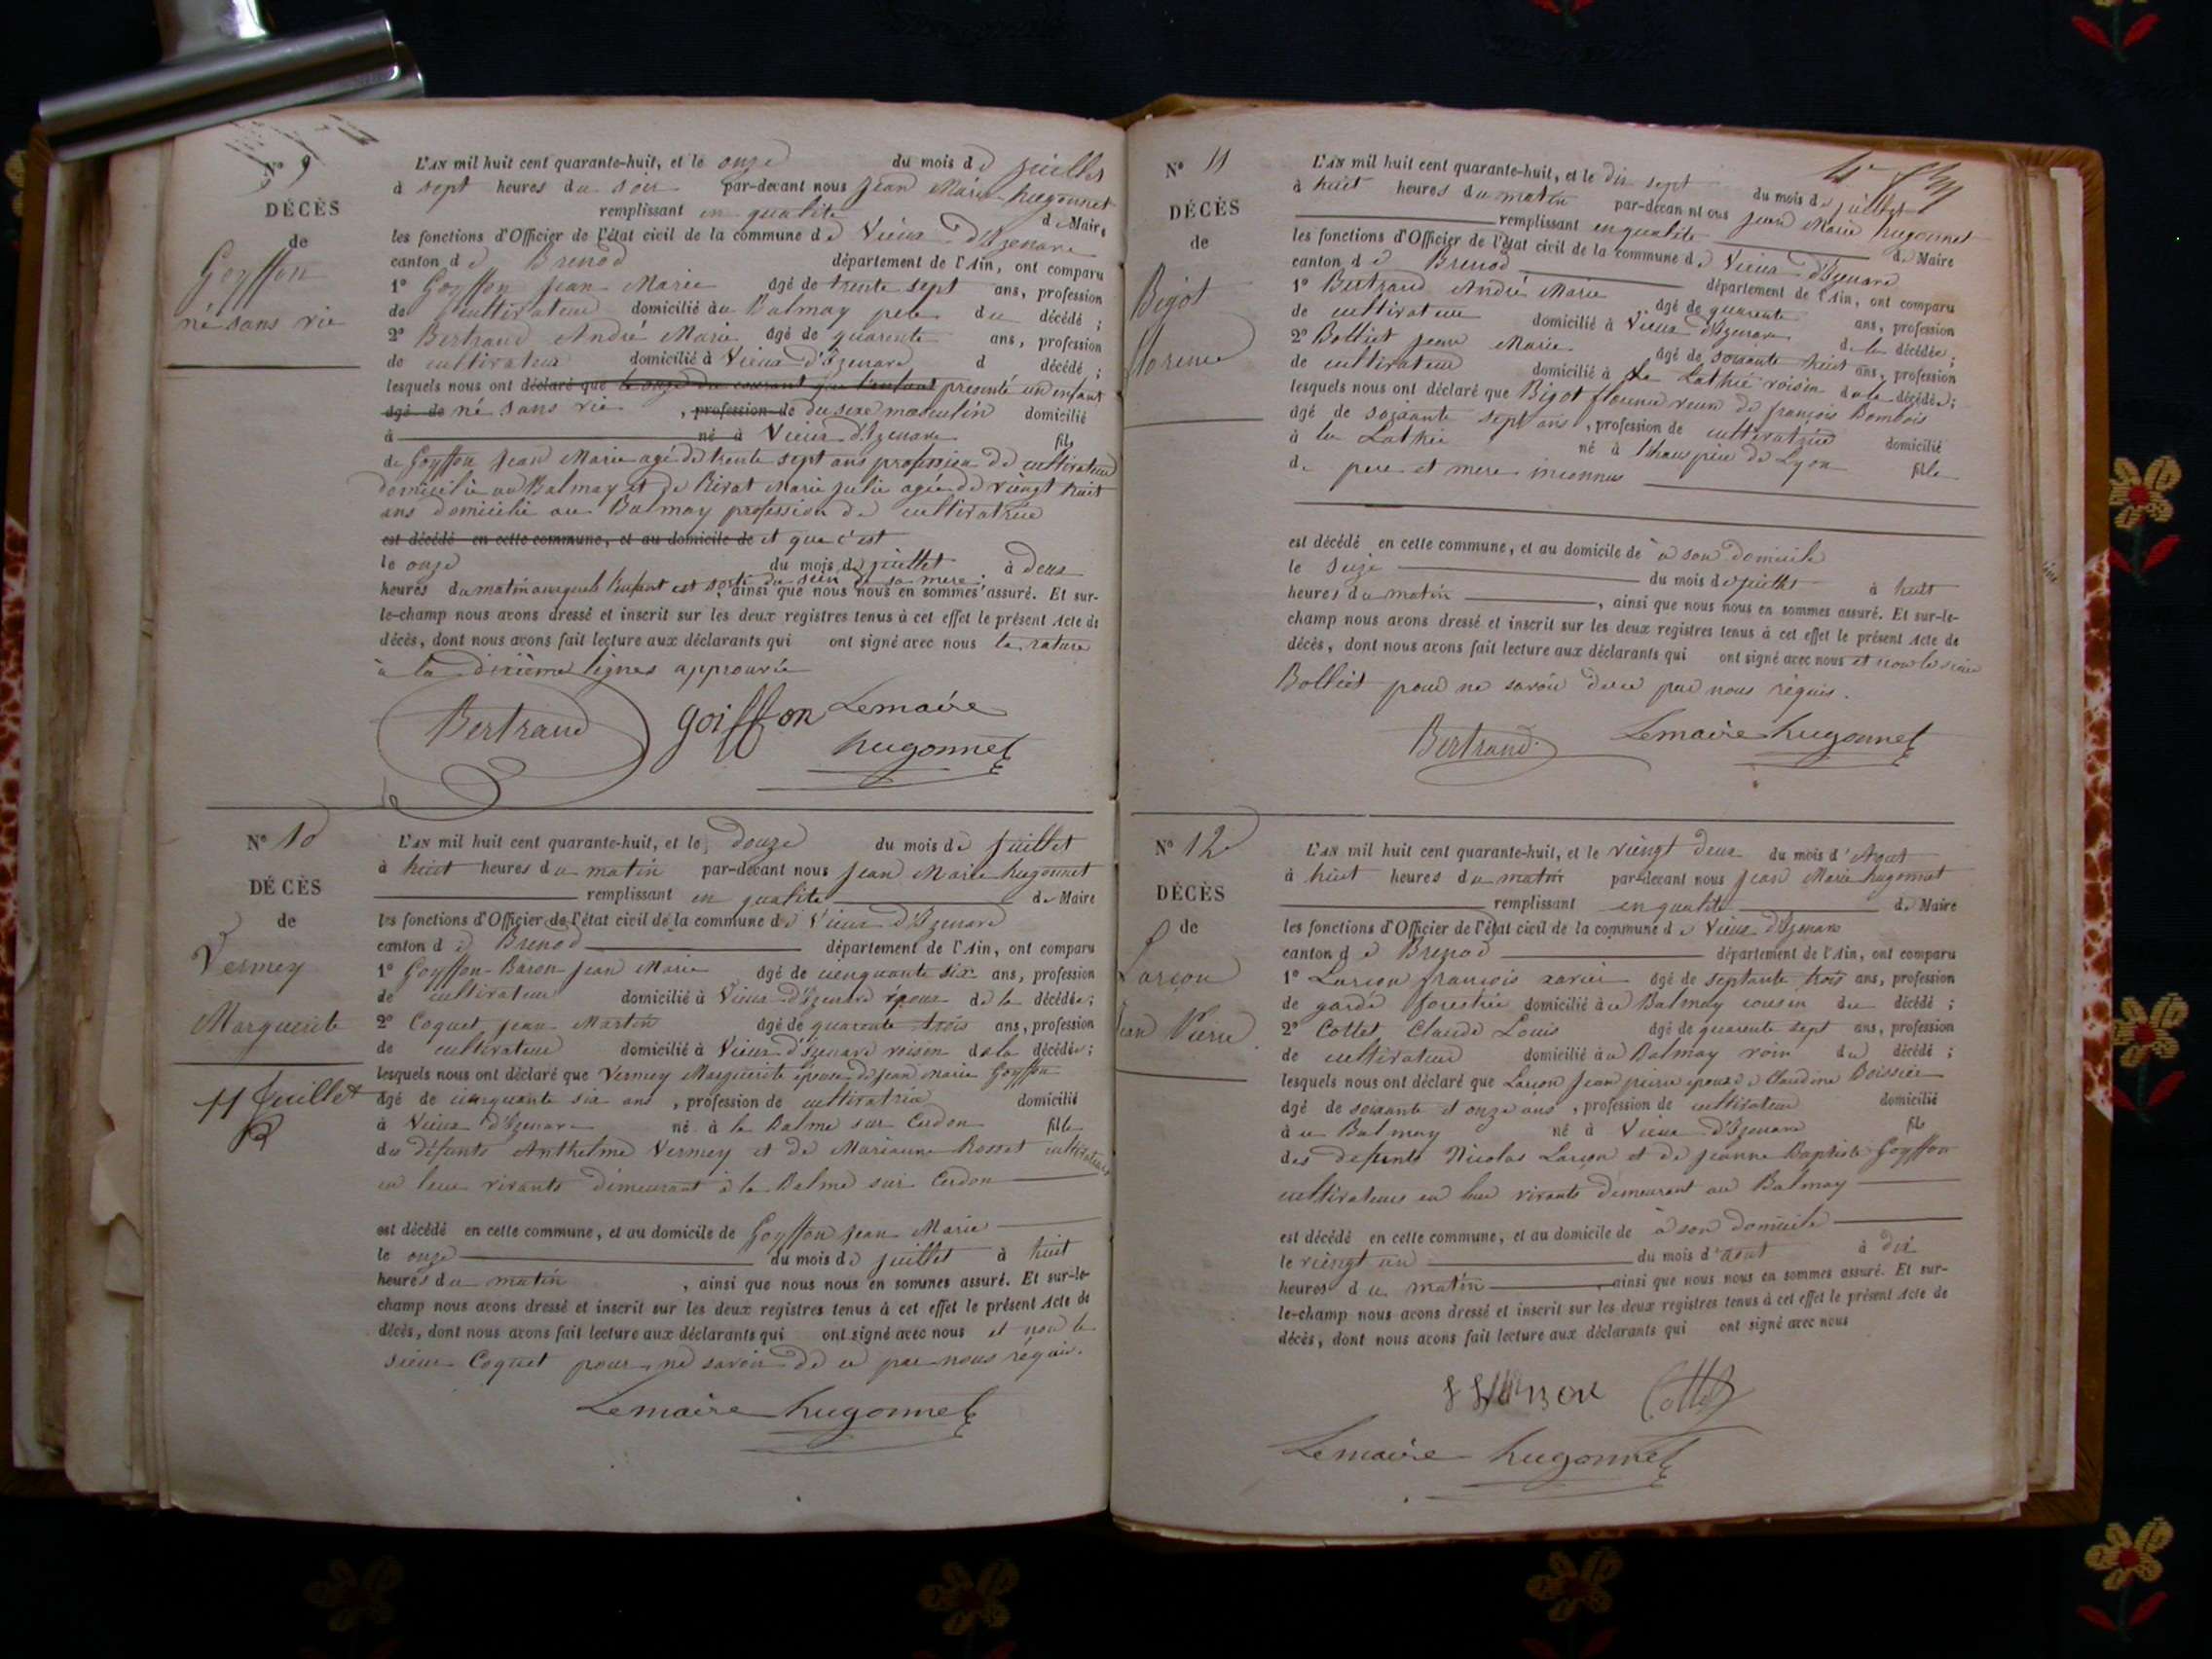 N° 9
DÉCÈS
de
Goyffon
né sans vie
L'AN mil huit cent quarante-huit, et le onze du mois de juillet
à sept heures du soir par-devant nous Jean Marie hugonnet
remplissant en qualité de Maire
les fonctions d'Officier de l'état civil de la commune de Vieux d'Izenave
canton de Brenod département de l'Ain, ont comparu
1° Goyffon Jean Marie âgé de trente sept ans, profession
de cultivateur domicilié au Balmay père du décédé ;
2° Bertrand André Marie âgé de quarente ans, profession
de cultivateur domicilié à Vieux d'Izenave d décédé ;
lesquels nous ont déclaré que le onze du courant que l'enfant presenté un enfant
âgé de né sans vie , profession de du sexe masculin domicilié
à né à Vieux d'Izenave fils
de Goyffon Jean Marie agé de trente sept ans profession de cultivateur
domicilié au Balmay et de Rivat Marie julie agée de vingt huit
ans domicilié au Balmay profession de cultivatrice
est décédé en cette commune, et au domicile de et que c'est
le onze du mois de juillet à deux
heures du matin auquel l'enfant est sorti du sein de sa mere, ainsi que nous nous en sommes assuré. Et sur-
le-champ nous avons dressé et inscrit sur les deux registres tenus à cet effet le présent Acte de
décès, dont nous avons fait lecture aux déclarants qui ont signé avec nous la rature
à la dixième lignes approuvée
Bertrand goiffon Lemaire
hugonnet
N° 10
DÉCÈS
de
Vermey
Marguerite
11 Juillet
L'AN mil huit cent quarante-huit, et le douze du mois de juillet
à huit heures du matin par-devant nous Jean Marie hugonnet
remplissant en qualité de Maire
les fonctions d'Officier de l'état civil de la commune de Vieux d'Izenave
canton de Brenod département de l'Ain, ont comparu
1° Goyffon-Baron Jean Marie âgé de cinquante six ans, profession
de cultivateur domicilié à Vieux d'Izenave époux de la décédée ;
2° Coquet Jean Martin âgé de quarente trois ans, profession
de cultivateur domicilié à Vieux d'Izenave voisin de la décédée ;
lesquels nous ont déclaré que Vermey Marguerite épouse de Jean Marie Goyffon
âgé de cinquante six ans , profession de cultivatrice domicilié
à Vieux d'Izenave né à la Balme sur Cerdon fille
du défunts Anthelme Vermey et de Marianne Rosset cultivateurs
en leur vivants demeurant à la Balme sur Cerdon
est décédé en cette commune, et au domicile de Goyffon Jean Marie
le onze du mois de juillet à huit
heures du matin , ainsi que nous nous en sommes assuré. Et sur-le-
champ nous avons dressé et inscrit sur les deux registres tenus à cet effet le présent Acte de
décès, dont nous avons fait lecture aux déclarants qui ont signé avec nous et non le
sieur Coquet pour ne savoir de ce par nous réquis.
Lemaire hugonnet
N° 11
DÉCÈS
de
Bigot
florence
L'AN mil huit cent quarante-huit, et le dix sept du mois de juillet
à huit heures du matin par-devan nt ous Jean Marie hugonnet
remplissant en qualité de Maire
les fonctions d'Officier de l'état civil de la commune de Vieux d'Izenave
canton de Brenod département de l'Ain, ont comparu
1° Bertrand André Marie âgé de quarente ans, profession
de cultivateur domicilié à Vieux d'Izenave de la décédée ;
2° Bolliet Jean Marie âgé de soixante huit ans, profession
de cultivateur domicilié à la Lathie voisin de la décédée ;
lesquels nous ont déclaré que Bigot florence veuve de françois Bombois
âgé de soixante sept ans , profession de cultivatrice domicilié
à la Lathie né à l'hauspice de Lyon fille
de pere et mere inconnus
est décédé en cette commune, et au domicile de à son domicile
le seize du mois de juillet à huit
heures du matin , ainsi que nous nous en sommes assuré. Et sur-le-
champ nous avons dressé et inscrit sur les deux registres tenus à cet effet le présent Acte de
décès, dont nous avons fait lecture aux déclarants qui ont signé avec nous et non le sieur
Bolliet pour ne savoir de ce par nous réquis.
Bertrand Lemaire hugonnet
N° 12
DÉCÈS
de
Larçon
Jean Pierre
L'AN mil huit cent quarante-huit, et le vingt deux du mois d'Aout
à huit heures du matin par-devant nous Jean Marie hugonnet
remplissant en qualité de Maire
les fonctions d'Officier de l'état civil de la commune de Vieux d'Izenave
canton de Brenod département de l'Ain, ont comparu
1° Larçon françois xavier âgé de septante trois ans, profession
de garde forestier domicilié au Balmay cousin du décédé ;
2° Collet Claude Louis âgé de quarente sept ans, profession
de cultivateur domicilié au Balmay voisin du décédé ;
lesquels nous ont déclaré que Larçon Jean pierre epoux de Claudine Boissier
âgé de soixante et onze ans , profession de cultivateur domicilié
à u Balmay né à Vieux d'Izenave fils
des defunts Nicolas Larçon et de Jeanne Baptiste Goyffon
cultivateurs en leur vivants demeurant au Balmay
est décédé en cette commune, et au domicile de à son domicile
le vingt un du mois d'aout à dix
heures du matin , ainsi que nous nous en sommes assuré. Et sur-
le-champ nous avons dressé et inscrit sur les deux registres tenus à cet effet le présent Acte de
décès, dont nous avons fait lecture aux déclarants qui ont signé avec nous
Collet
Lemaire hugonnet